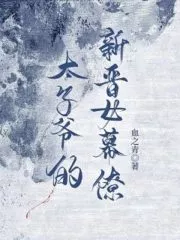 太子爷的
新晋女幕僚
血之青 著